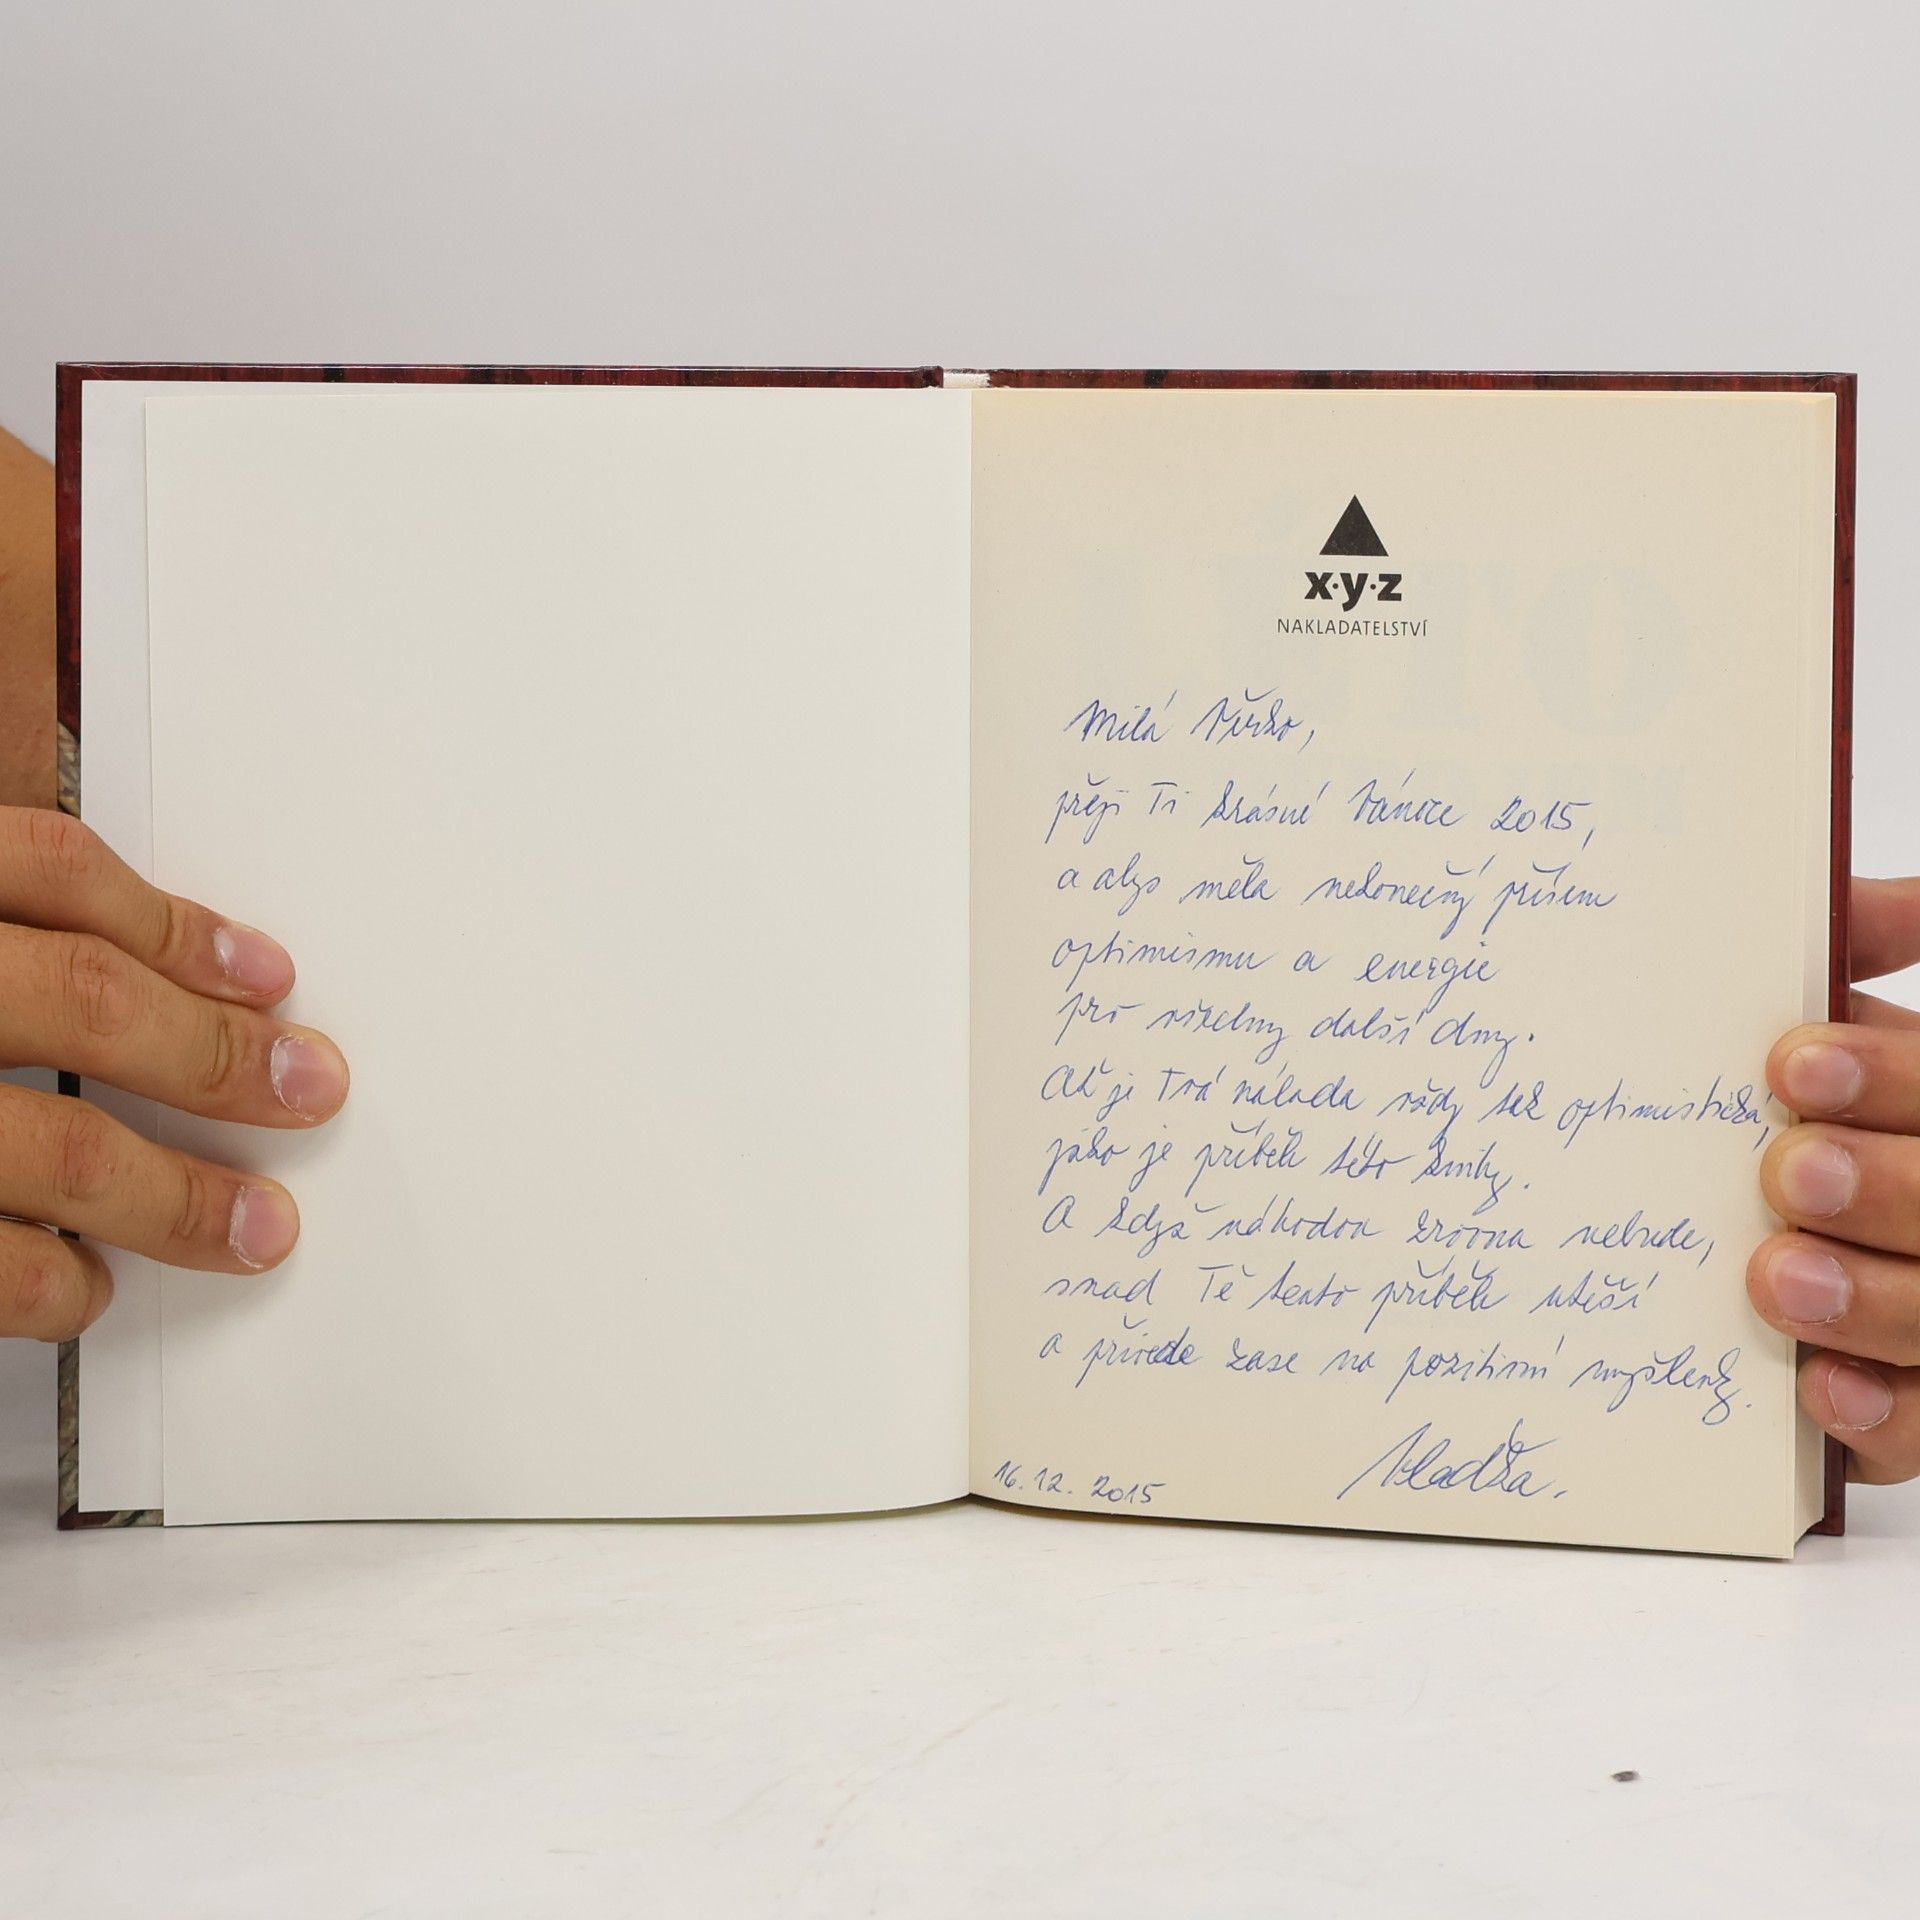 x·y·z
NAKLADATELSTVÍ
Milá Věrko,
přeji Ti krásné Vánoce 2015,
a abys měla nekonečný přísun
optimismu a energie
pro všechny další dny.
Ať je Tvá nálada vždy tak optimistická,
jako je příběh této knihy.
A když náhodou zrovna nebude,
snad Tě tento příběh utěší
a přivede zase na pozitivní myšlenky.
Vlaďka.
16.12.2015